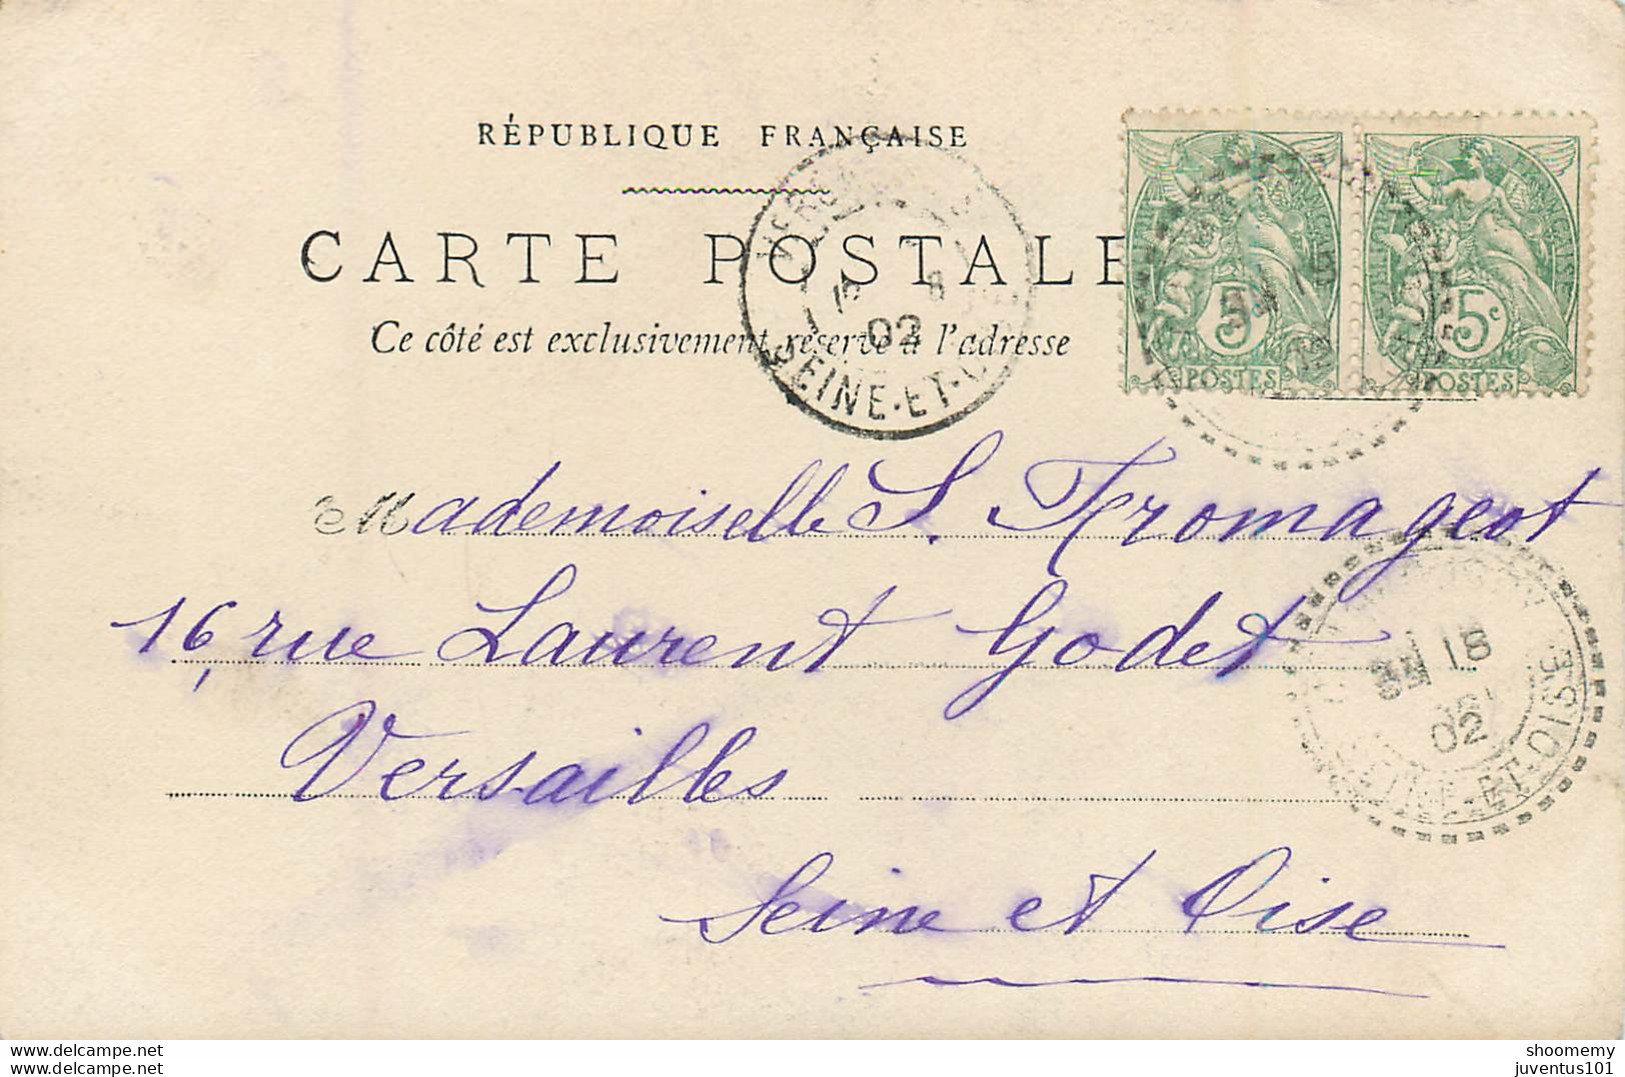 RÉPUBLIQUE FRANÇAISE
CARTE POSTALE
Ce côté est exclusivement réservé à l'adresse
02
SEINE-ET-O
5
POSTES
5c
POSTES
Mademoiselle S. Fromageot
16, rue Laurent Godet
Versailles
Seine et Oise
18
02
SEINE-ET-OISE
www.delcampe.net
www.delcampe.net
shoomemy
juventus101